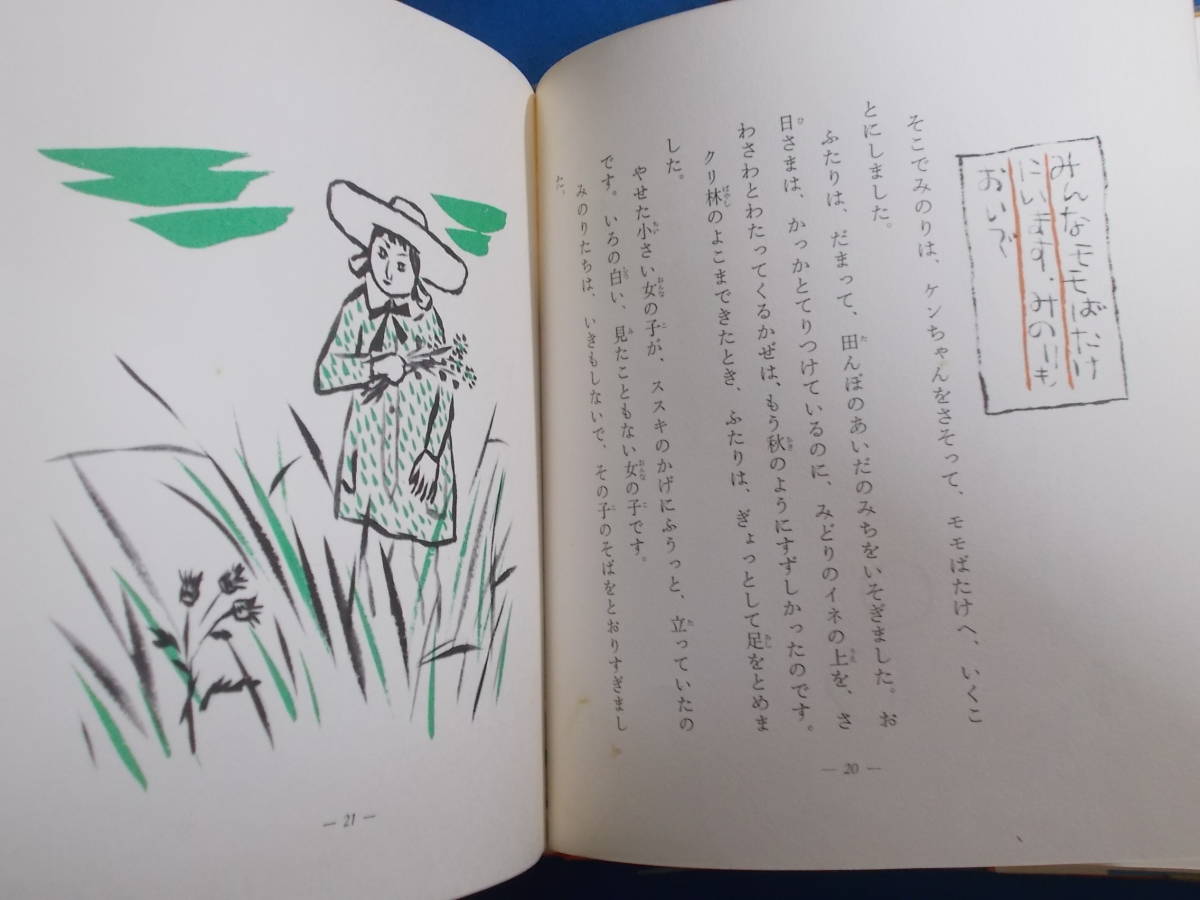 みんなモモばたけ
にいます。みのりも
おいで
そこでみのりは、ケンちゃんをさそって、モモばたけへ、いくこ
とにしました。
ふたりは、だまって、田んぼのあいだのみちをいそぎました。お
日さまは、かっかとてりつけているのに、みどりのイネの上を、さ
わさわとわたってくるかぜは、もう秋のようにすずしかったのです。
クリ林のよこまできたとき、ふたりは、ぎょっとして足をとめま
した。
やせた小さい女の子が、ススキのかげにふうっと、立っていたの
です。いろの白い、見たこともない女の子です。
みのりたちは、いきもしないで、その子のそばをとおりすぎまし
た。
— 20 —
— 21 —